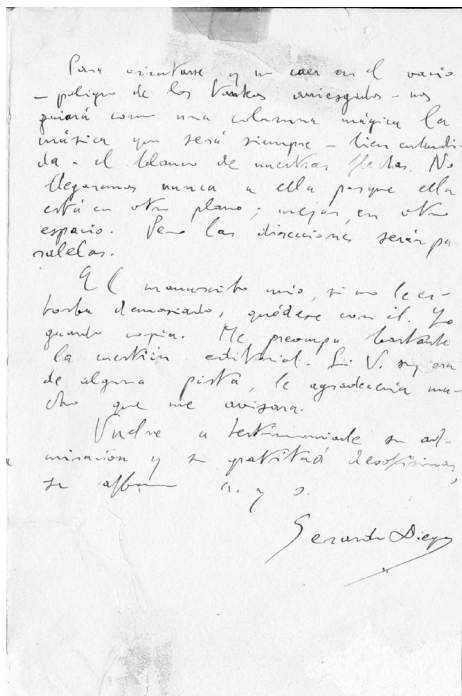 Para orientarse y no caer en el vacío
— peligro de los vuelos arriesgados — nos
guiará como una columna mágica la
música que será siempre — bien entendi-
da — el blanco de nuestras flechas. No
llegaremos nunca a ella porque ella
está en otro plano; mejor, en otro
espacio. Pero las direcciones serán pa-
ralelas.
El manuscrito mío, si no le es-
torba demasiado, quédese con él. Yo
guardo copia. Me preocupa bastante
la cuestión editorial. Si V. supiera
de alguna pista, le agradecería mu-
cho que me avisara.
Vuelve a testimoniarle su ad-
miración y su gratitud
su a. y s.
Gerardo Diego